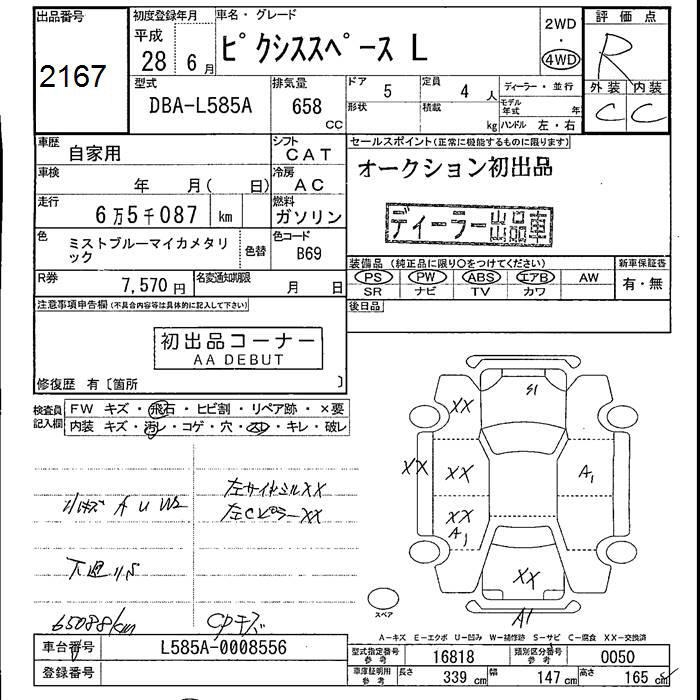 出品番号
2167
初度登録年月
平成
28年6月
車名・グレード
ピクシススペース L
2WD
・
4WD
評価点
R
外装 内装
C C
型式
DBA-L585A
排気量
658
CC
ドア 5
定員 4人
形状
積載 kg
ディーラー・並行
モデル年式 年
ハンドル 左・右
車歴
自家用
シフト
CAT
セールスポイント(正常に機能するものに限ります)
オークション初出品
ディーラー出品車
車検
年 月( 日)
冷房
AC
走行
6万5千087 km
燃料
ガソリン
色
ミストブルーマイカメタリック
色替
色コード
B69
装備品(純正品に限り○をつけてください)
PS PW ABS エアB AW
SR ナビ TV カワ
新車保証書
有・無
R券
7,570円
名変通知期限
月 日
後日品
注意事項申告欄(不具合内容等は具体的に記入して下さい)
初出品コーナー
AA DEBUT
修復歴 有〔箇所 〕
検査員記入欄
FW キズ・飛石・ヒビ割・リペア跡・×要
内装 キズ・汚レ・コゲ・穴・スレ・キレ・破レ
小キズ A U W2
左サイドシルXX
左CピラーXX
下廻りS
65088km
CPキズ
S1
XX
XX
XX
A1
XX
A1
XX
A1
スペア
A-キズ E-エクボ U-凹み W-補修跡 S-サビ C-腐食 XX-交換済
車台番号
L585A-0008556
登録番号
型式指定番号
参考
16818
類別区分番号
参考
0050
車庫証明用
参考
長さ 339 cm
幅 147 cm
高さ 165 cm